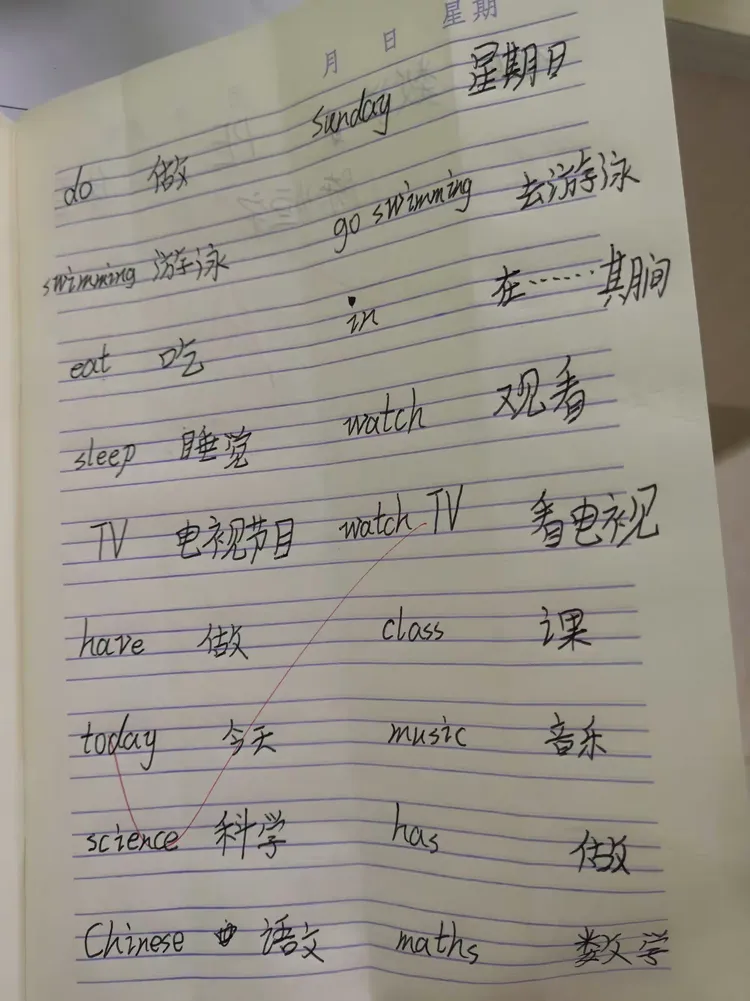 月 日 星期
do 做 sunday 星期日
swimming 游泳 go swimming 去游泳
eat 吃 in 在……其期间
sleep 睡觉 watch 观看
TV 电视节目 watch TV 看电视
have 做 class 课
today 今天 music 音乐
science 科学 has 做
Chinese 语文 maths 数学